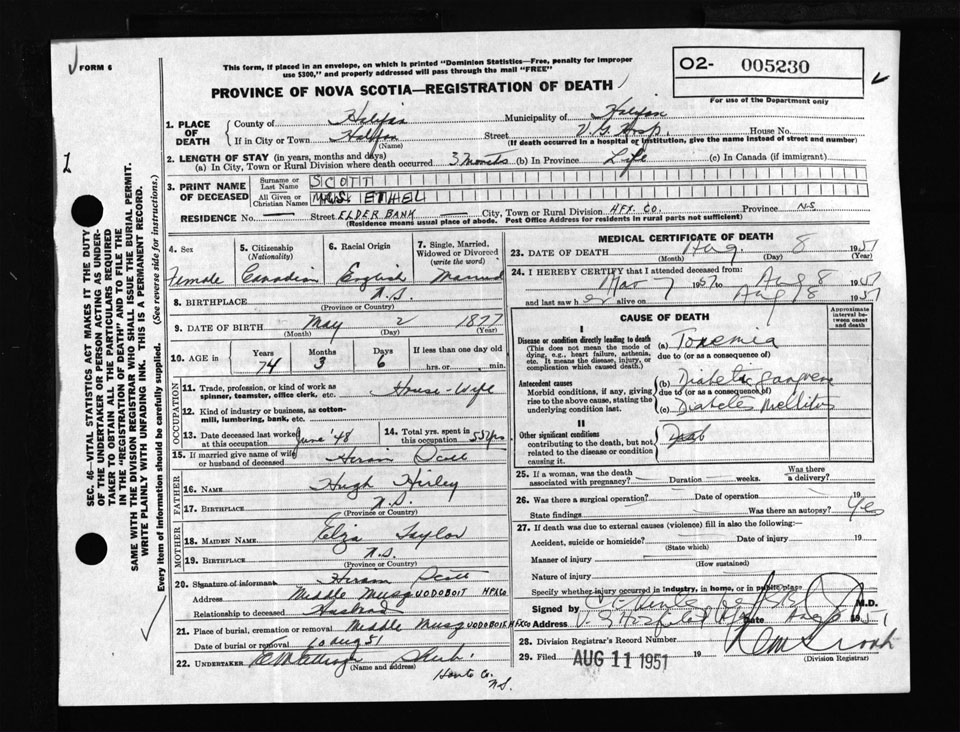 FORM 6
This form, if placed in an envelope, on which is printed "Dominion Statistics—Free, penalty for improper
use $300," and properly addressed will pass through the mail "FREE"
PROVINCE OF NOVA SCOTIA—REGISTRATION OF DEATH
O2- 005230
For use of the Department only
1
1. PLACE OF DEATH
County of Halifax Municipality of Halifax
If in City or Town Halifax (Name) Street V.G. Hosp. House No.
(If death occurred in a hospital or institution, give the name instead of street and number)
2. LENGTH OF STAY (in years, months and days)
(a) In City, Town or Rural Division where death occurred 3 months (b) In Province Life (c) In Canada (if immigrant)
3. PRINT NAME OF DECEASED
Surname or Last Name SCOTT
All Given or Christian Names MRS. ETHEL
RESIDENCE No. — Street ELDERBANK — City, Town or Rural Division HFX. CO. Province N.S
(Residence means usual place of abode. Post Office Address for residents in rural parts not sufficient)
4. Sex Female
5. Citizenship (Nationality) Canadian
6. Racial Origin English
7. Single, Married, Widowed or Divorced (write the word) Married
8. BIRTHPLACE N.S. (Province or Country)
9. DATE OF BIRTH May (Month) 2 (Day) 1877 (Year)
10. AGE in Years 74 Months 3 Days 6 If less than one day old hrs. or min.
OCCUPATION
11. Trade, profession, or kind of work as
spinner, teamster, office clerk, etc. House-Wife
12. Kind of industry or business, as cotton-
mill, lumbering, bank, etc.
13. Date deceased last worked at this occupation June '48
14. Total yrs. spent in this occupation 55 yrs.
15. If married give name of wife or husband of deceased Hiram Scott
FATHER
16. NAME Hugh
17. BIRTHPLACE N.S. (Province or Country)
MOTHER
18. MAIDEN NAME Eliza Taylor
19. BIRTHPLACE N.S. (Province or Country)
20. Signature of informant Hiram Scott
Address Middle MusqUODOBOIT HFXCO
Relationship to deceased Husband
21. Place of burial, cremation or removal Middle MusqUODOBOIT, HFXCO
Date of burial or removal 10 Aug 51
22. UNDERTAKER (Name and address)
Hants Co.
N.S.
MEDICAL CERTIFICATE OF DEATH
23. DATE OF DEATH Aug. (Month) 8 (Day) 1951 (Year)
24. I HEREBY CERTIFY that I attended deceased from:
7 1951 to Aug 8 1951
and last saw her alive on Aug 8 1951
CAUSE OF DEATH
Approximate interval between onset and death
I
Disease or condition directly leading to death
(This does not mean the mode of
dying, e.g., heart failure, asthenia,
etc. It means the disease, injury, or
complication which caused death.)
(a) Toxemia
due to (or as a consequence of)
Antecedent causes
Morbid conditions, if any, giving
rise to the above cause, stating the
underlying condition last.
(b) Diabetic gangrene
due to (or as a consequence of)
(c) Diabetes Mellitus
II
Other significant conditions
contributing to the death, but not
related to the disease or condition
causing it.
25. If a woman, was the death associated with pregnancy? Duration weeks. Was there a delivery?
26. Was there a surgical operation? Date of operation 19
State findings Was there an autopsy? Yes
27. If death was due to external causes (violence) fill in also the following:—
Accident, suicide or homicide? (State which) Date of injury 19
Manner of injury (How sustained)
Nature of injury
Specify whether injury occurred in industry, in home, or in public place
Signed by M.D.
Address V.G. Hospital Hfx Date Aug 8 1951
28. Division Registrar's Record Number
29. Filed AUG 11 1951 19 (Division Registrar)
SEC. 46—VITAL STATISTICS ACT MAKES IT THE DUTY
OF THE UNDERTAKER OR PERSON ACTING AS UNDER-
TAKER TO OBTAIN ALL THE PARTICULARS REQUIRED
IN THE "REGISTRATION OF DEATH" AND TO FILE THE
SAME WITH THE DIVISION REGISTRAR WHO SHALL ISSUE THE BURIAL PERMIT.
WRITE PLAINLY WITH UNFADING INK. THIS IS A PERMANENT RECORD.
Every item of information should be carefully supplied. (See reverse side for instructions.)